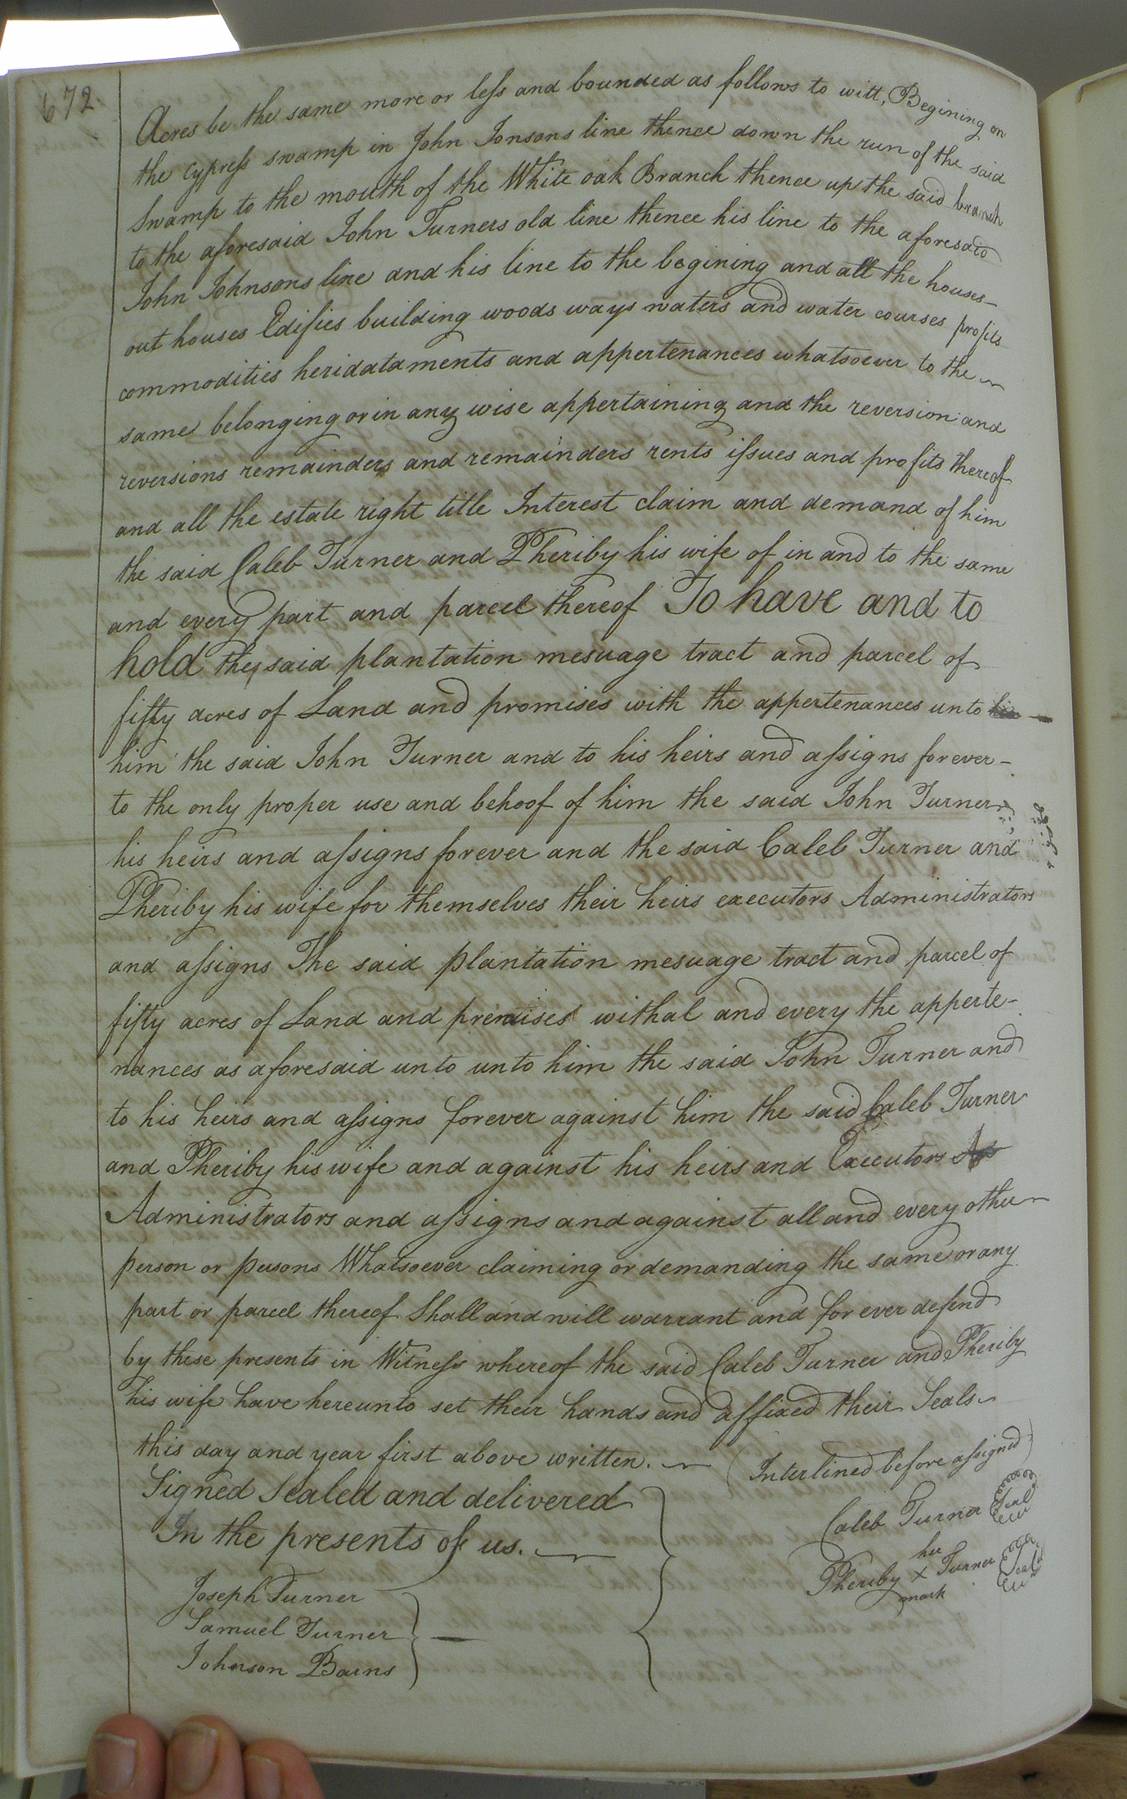 672.
Acres be the same more or less and bounded as follows to witt, Begining on
the cypress swamp in John Jonsons line thence down the run of the said
Swamp to the mouth of the White oak Branch thence up the said branch
to the aforesaid John Turners old line thence his line to the aforesaid
John Johnsons line and his line to the begining and all the houses
out houses Edifies building woods ways waters and water courses profits
commodities heridataments and appertenances whatsoever to the
same belonging or in any wise appertaining and the reversion and
reversions remainders and remainders rents issues and profits thereof
and all the estate right title Interest claim and demand of him
the said Caleb Turner and Pheriby his wife of in and to the same
and every part and parcel thereof To have and to
hold the said plantation mesuage tract and parcel of
fifty acres of Land and promises with the appertenances unto his
him the said John Turner and to his heirs and assigns forever-
to the only proper use and behoof of him the said John Turner
his heirs and assigns forever and the said Caleb Turner and
Pheriby his wife for themselves their heirs executors Administrators
and assigns The said plantation mesuage tract and parcel of
fifty acres of Land and premises withal and every the apperte-
nances as aforesaid unto unto him the said John Turner and
to his heirs and assigns forever against him the said Caleb Turner
and Pheriby his wife and against his heirs and Executors As
Administrators and assigns and against all and every other
person or persons Whatsoever claiming or demanding the same or any
part or parcel thereof Shall and will warrant and for ever defend
by these presents in Witness whereof the said Caleb Turner and Pheriby
his wife have hereunto set their hands and affixed their Seals
this day and year first above written. (Interlined before assigned)
Signed Sealed and delivered
In the presents of us.
Caleb Turner Seal
her
Pheriby X Turner Seal
mark
Joseph Turner
Samuel Turner
Johnson Barns